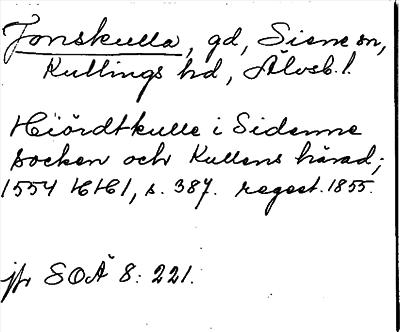 Jonskulla, gd, Siene sn,
Kullings hd, Älvsb. l.
Hiördtkulle i Sidenne
socken och Kullens härad;
1554 HH1, s. 387. regest. 1855.
jfr SOÄ 8: 221.